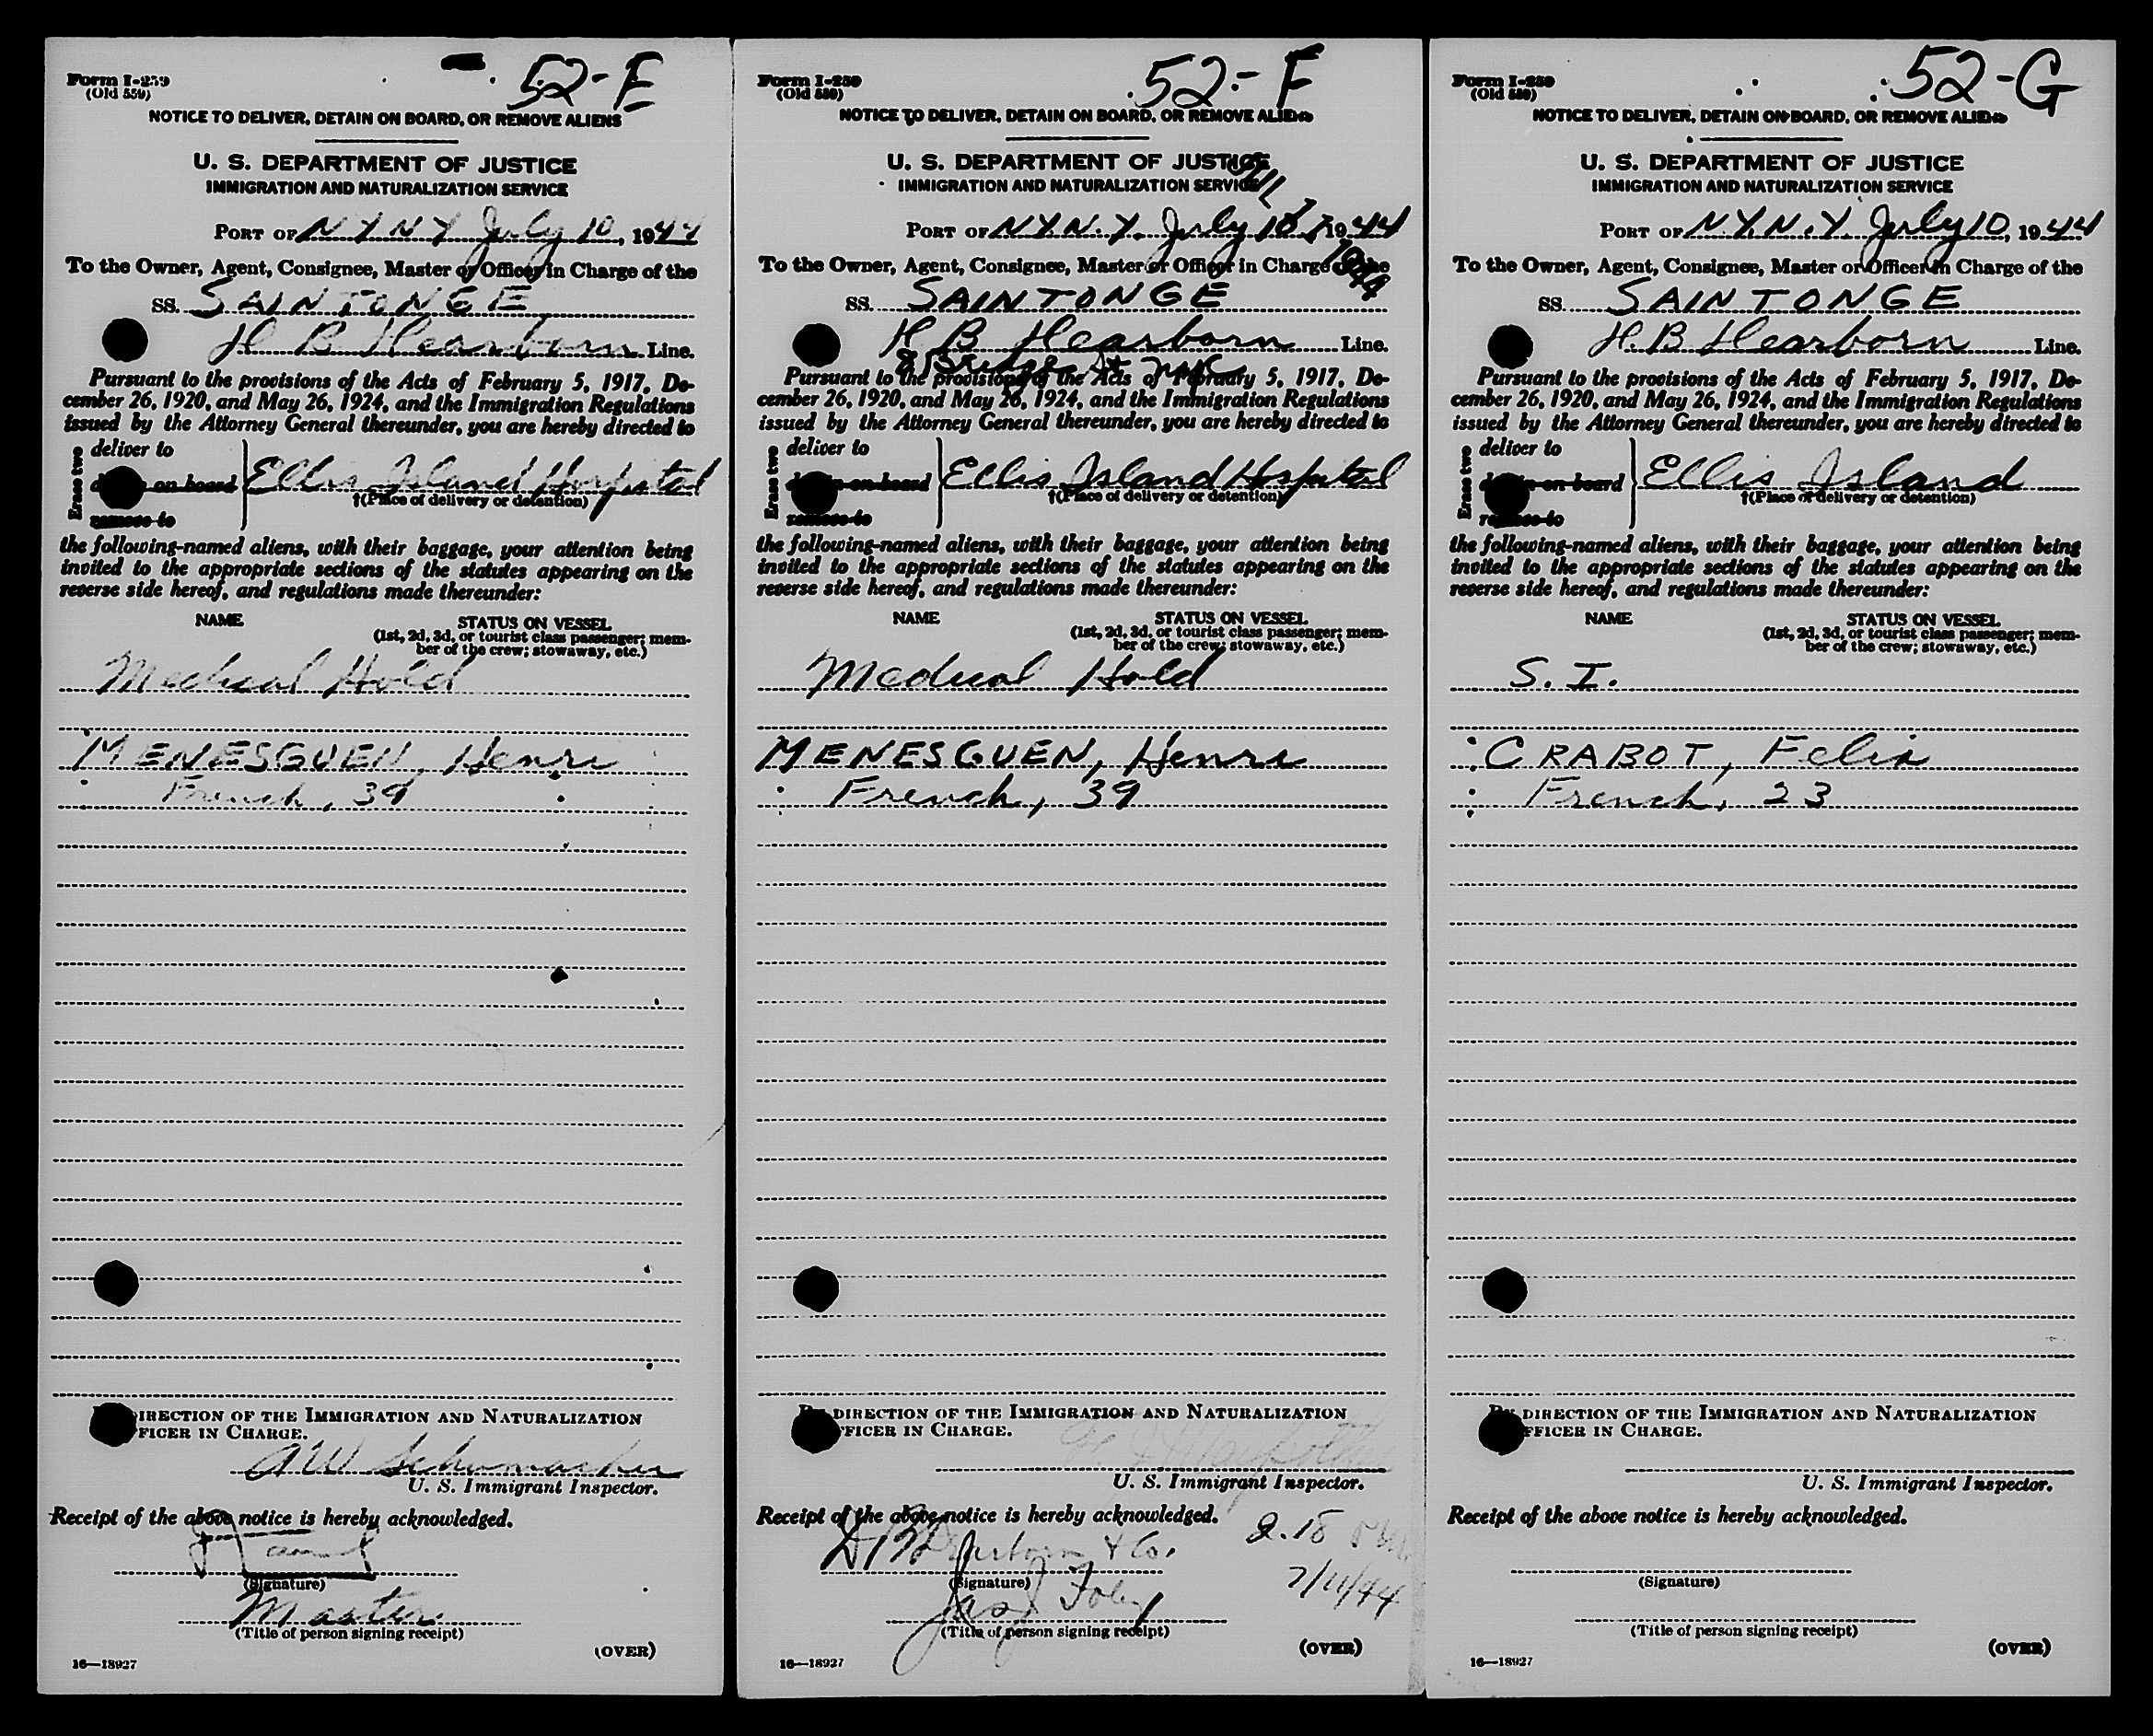 52-E
Form I-259
(Old 559)
NOTICE TO DELIVER, DETAIN ON BOARD, OR REMOVE ALIENS
U. S. DEPARTMENT OF JUSTICE
IMMIGRATION AND NATURALIZATION SERVICE
PORT OF N Y N Y July 10, 1944
To the Owner, Agent, Consignee, Master or Officer in Charge of the
SS. SAINTONGE
H B Hearborn Line.
Pursuant to the provisions of the Acts of February 5, 1917, De-
cember 26, 1920, and May 26, 1924, and the Immigration Regulations
issued by the Attorney General thereunder, you are hereby directed to
Erase two
deliver to
on board Ellis Island Hospital
†(Place of delivery or detention)
remove to
the following-named aliens, with their baggage, your attention being
invited to the appropriate sections of the statutes appearing on the
reverse side hereof, and regulations made thereunder:
NAME STATUS ON VESSEL
(1st, 2d, 3d, or tourist class passenger; mem-
ber of the crew; stowaway, etc.)
Medical Hold
MENESGUEN, Henri
French, 39
DIRECTION OF THE IMMIGRATION AND NATURALIZATION
OFFICER IN CHARGE.
A W Schumacher
U. S. Immigrant Inspector.
Receipt of the above notice is hereby acknowledged.
(Signature)
Master
(Title of person signing receipt)
(OVER)
16—18927
52-F
Form I-259
(Old 559)
NOTICE TO DELIVER, DETAIN ON BOARD, OR REMOVE ALIENS
U. S. DEPARTMENT OF JUSTICE
IMMIGRATION AND NATURALIZATION SERVICE
PORT OF N.Y.N.Y. July 10, 1944
To the Owner, Agent, Consignee, Master or Officer in Charge of the
SS. SAINTONGE
H B Hearborn Line.
8 Bridge St NYC
Pursuant to the provisions of the Acts of February 5, 1917, De-
cember 26, 1920, and May 26, 1924, and the Immigration Regulations
issued by the Attorney General thereunder, you are hereby directed to
Erase two
deliver to
on board Ellis Island Hospital
†(Place of delivery or detention)
remove to
the following-named aliens, with their baggage, your attention being
invited to the appropriate sections of the statutes appearing on the
reverse side hereof, and regulations made thereunder:
NAME STATUS ON VESSEL
(1st, 2d, 3d, or tourist class passenger; mem-
ber of the crew; stowaway, etc.)
Medical Hold
MENESGUEN, Henri
French, 39
BY DIRECTION OF THE IMMIGRATION AND NATURALIZATION
OFFICER IN CHARGE.
U. S. Immigrant Inspector.
Receipt of the above notice is hereby acknowledged.
& Co. 2.15
(Signature) 7/11/44
Jas J Foley
(Title of person signing receipt)
(OVER)
16—18927
52-G
Form I-259
(Old 559)
NOTICE TO DELIVER, DETAIN ON BOARD, OR REMOVE ALIENS
U. S. DEPARTMENT OF JUSTICE
IMMIGRATION AND NATURALIZATION SERVICE
PORT OF N.Y.N.Y. July 10, 1944
To the Owner, Agent, Consignee, Master or Officer in Charge of the
SS. SAINTONGE
H. B Hearborn Line.
Pursuant to the provisions of the Acts of February 5, 1917, De-
cember 26, 1920, and May 26, 1924, and the Immigration Regulations
issued by the Attorney General thereunder, you are hereby directed to
Erase two
deliver to
on board Ellis Island
†(Place of delivery or detention)
remove to
the following-named aliens, with their baggage, your attention being
invited to the appropriate sections of the statutes appearing on the
reverse side hereof, and regulations made thereunder:
NAME STATUS ON VESSEL
(1st, 2d, 3d, or tourist class passenger; mem-
ber of the crew; stowaway, etc.)
S. I.
CRABOT, Felix
French, 23
BY DIRECTION OF THE IMMIGRATION AND NATURALIZATION
OFFICER IN CHARGE.
U. S. Immigrant Inspector.
Receipt of the above notice is hereby acknowledged.
(Signature)
(Title of person signing receipt)
(OVER)
16—18927